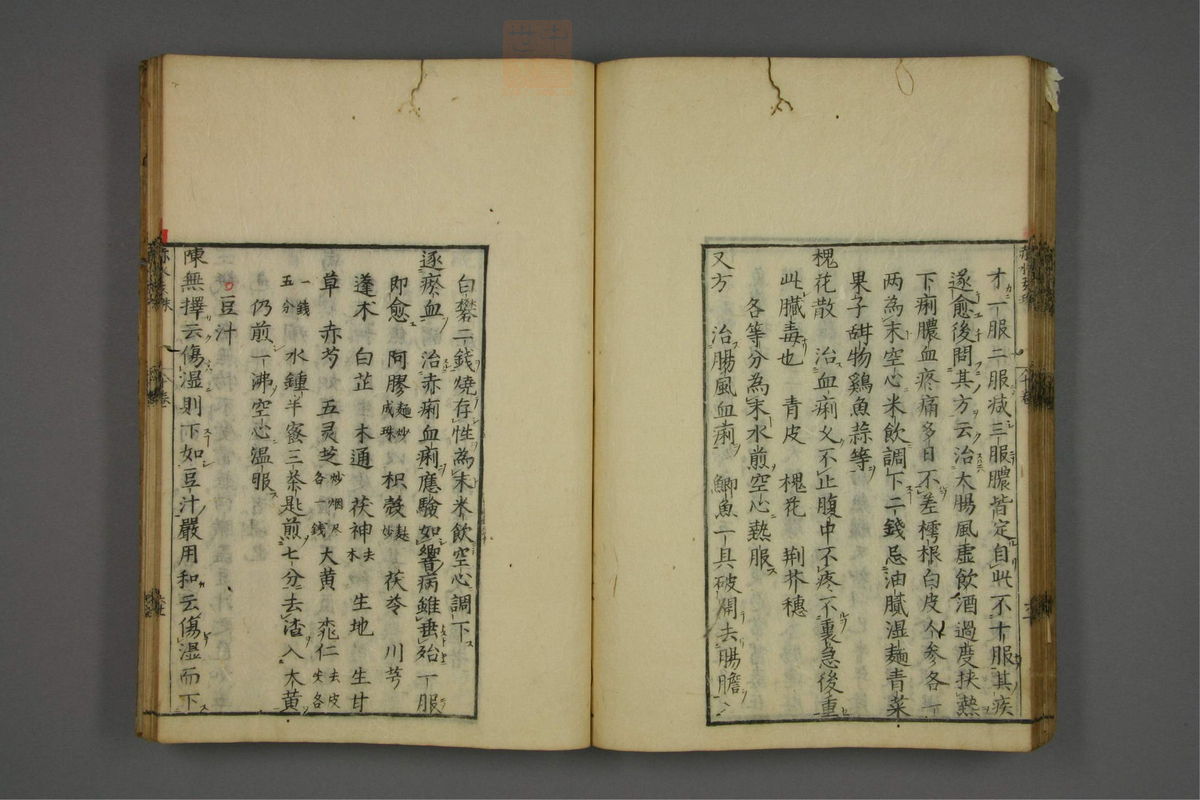 才一服二服减三服膿皆定自此不十服其疾
遂愈後問其方云治大腸風虚飲酒過度挟熱
下痢膿血疼痛多日不差樗根白皮人参各一
两為末空心米飲調下二錢忌油膩湿麺青菜
果子甜物鷄魚蒜等
槐花散 治血痢久不止腹中不疼不裏急後重
此臓毒也 青皮 槐花 荆芥穗
各等分為末水煎空心熱服
又方 治腸風血痢 鯽魚一具破開去腸膽入
白礬二錢燒存性為末米飲空心調下
逐瘀血 治赤痢血痢應驗如響病雖垂殆一服
即愈 阿膠麺炒成珠 枳殻麸炒 茯苓 川芎
蓬木 白芷 木通 茯神去木 生地 生甘
草 赤芍 五灵芝炒烟尽各一錢 大黄 桃仁去皮尖各
一錢五分 水鍾半蜜三茶匙煎七分去渣入大黄
仍煎一沸空心温服
豆汁
陳無擇云傷湿則下如豆汁嚴用和云傷湿而下